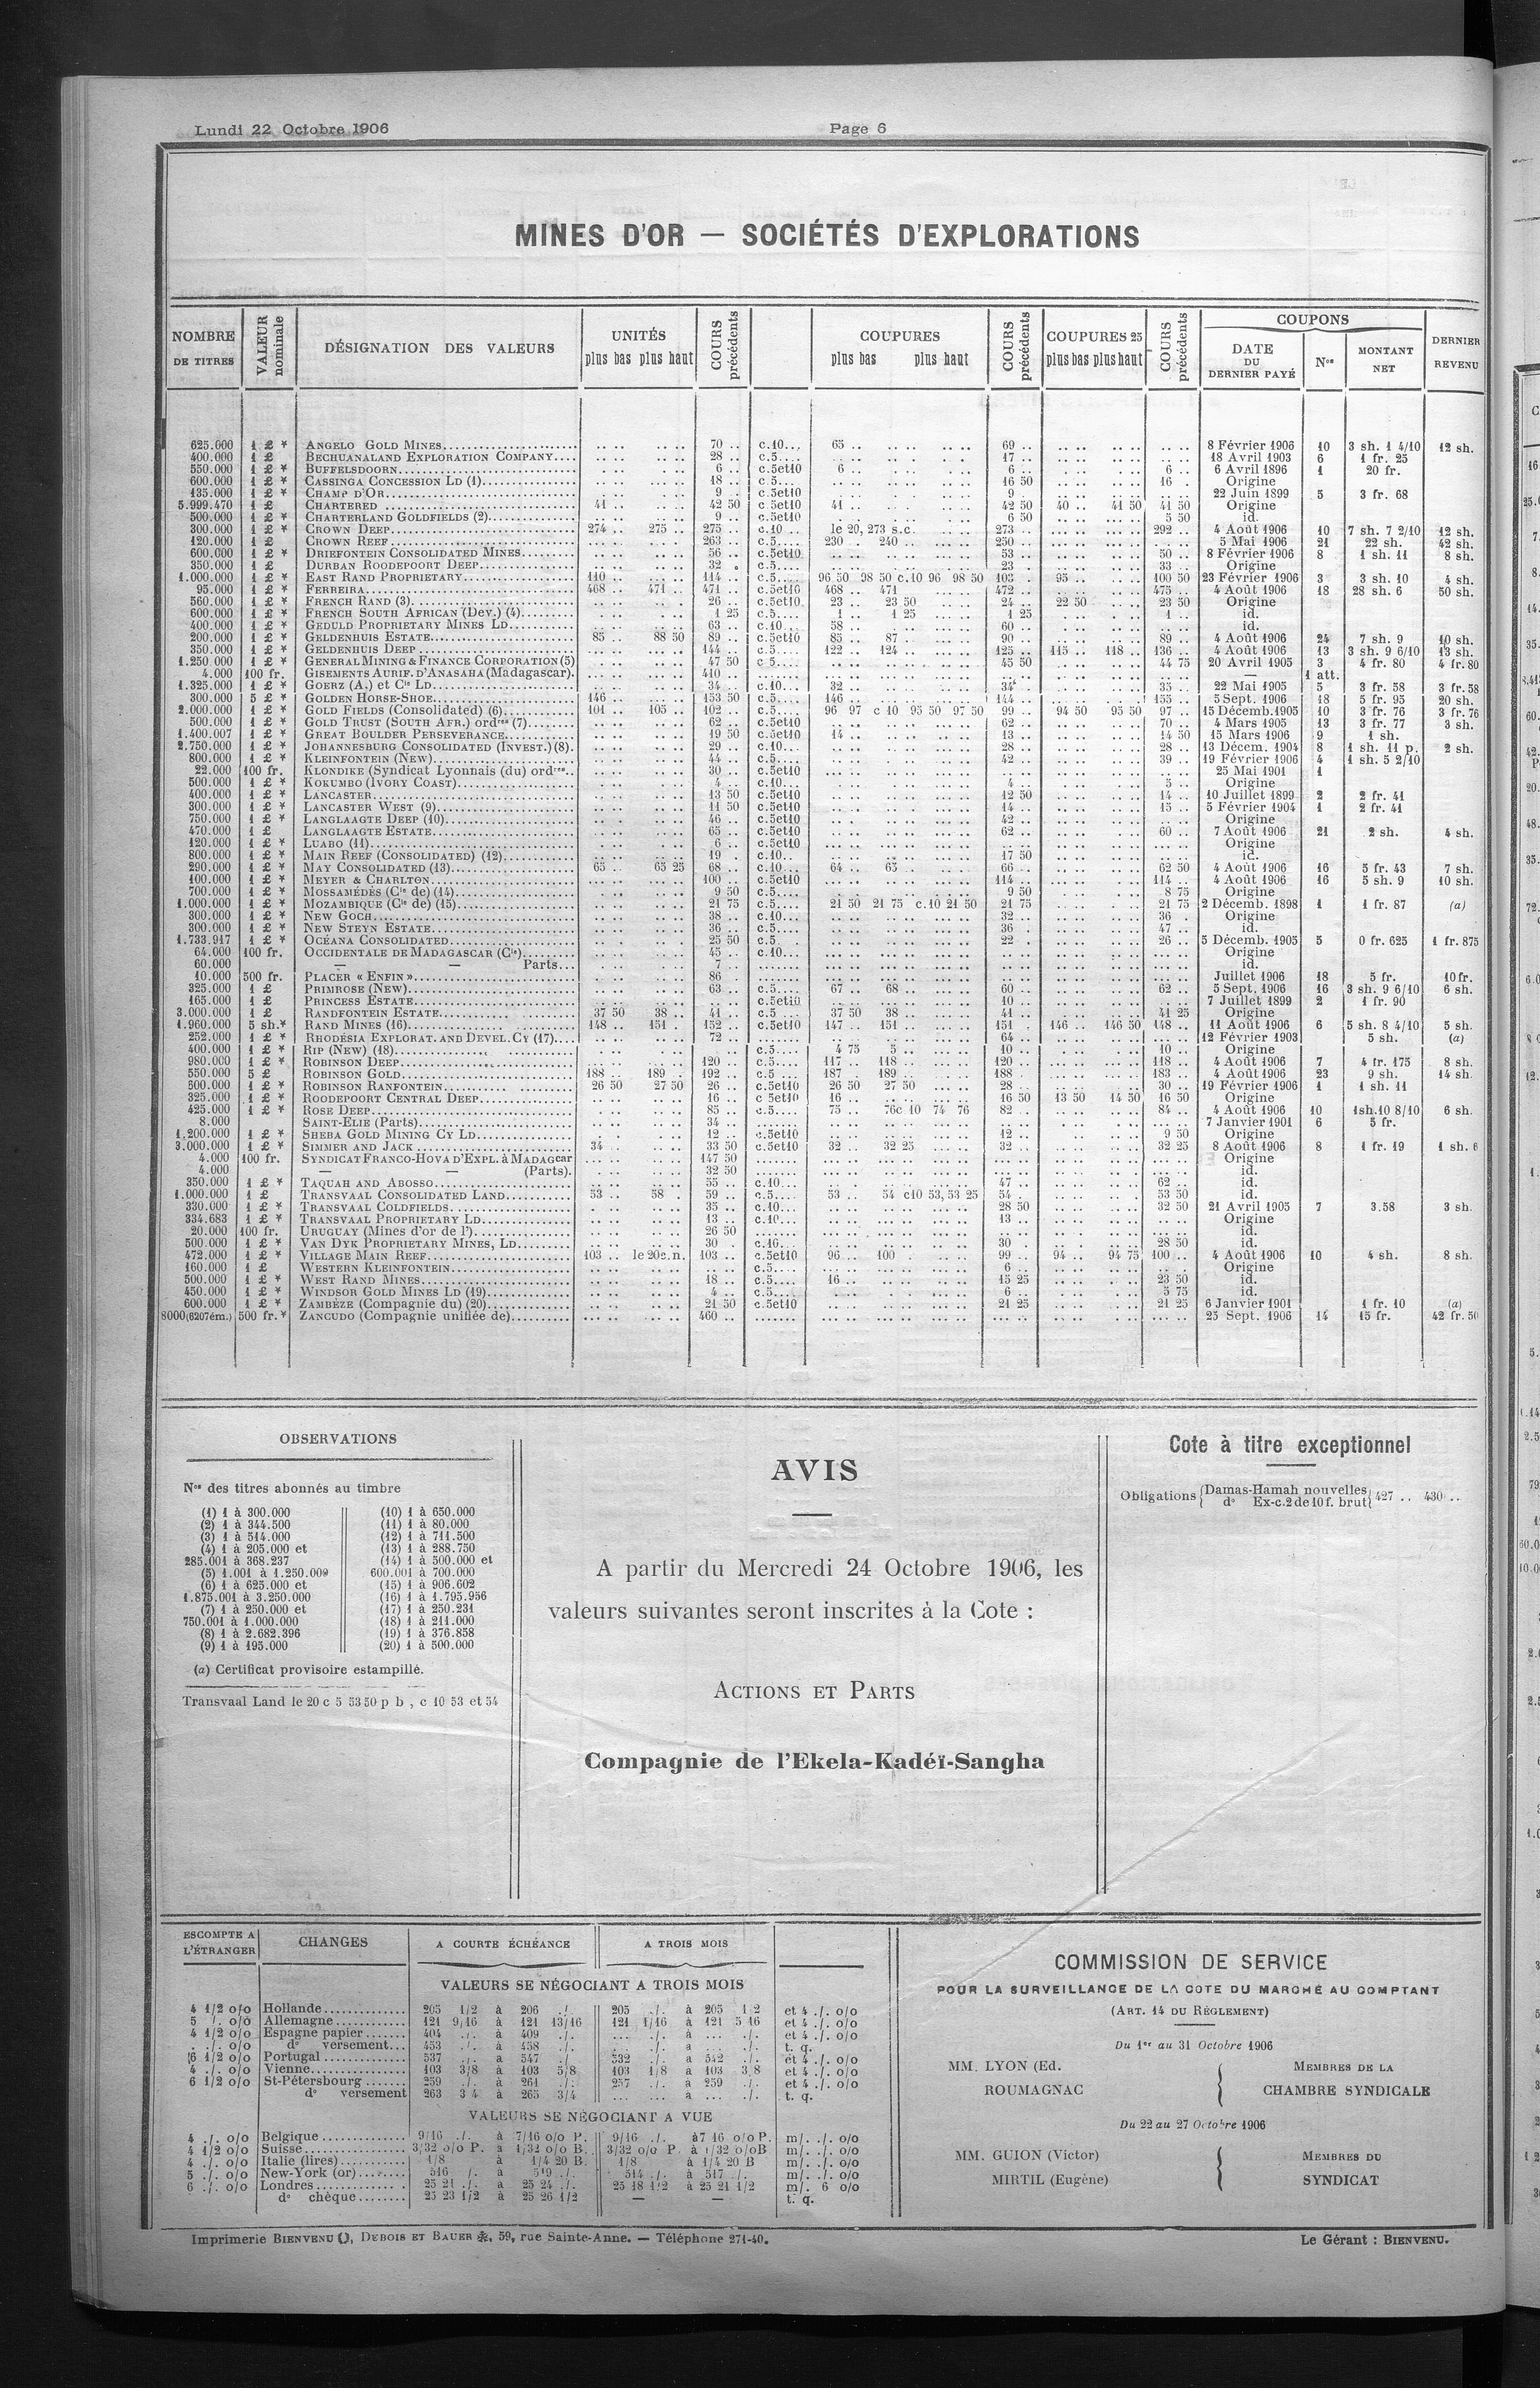 Lundi 22 Octobre 1906 Page 6
MINES D'OR — SOCIÉTÉS D'EXPLORATIONS
NOMBRE DE TITRES | VALEUR nominale | DÉSIGNATION DES VALEURS | UNITÉS plus bas plus haut | COURS précédents | COUPURES plus bas plus haut | COURS précédents | COUPURES 25 plus bas plus haut | COURS précédents | COUPONS DATE DU DERNIER PAYÉ | Nos | MONTANT NET | DERNIER REVENU
625.000 1 £ * ANGELO GOLD MINES 70 .. c.10 65 .. 69 .. 8 Février 1906 10 3 sh. 1 4/10 12 sh.
400.000 1 £ BECHUANALAND EXPLORATION COMPANY 28 .. c.5 17 .. 18 Avril 1903 6 1 fr. 25
550.000 1 £ * BUFFELSDOORN 6 .. c.5et10 6 .. 6 .. 6 .. 6 Avril 1896 1 20 fr.
600.000 1 £ * CASSINGA CONCESSION LD (1) 18 .. c.5 16 50 16 . Origine
135.000 1 £ * CHAMP D'OR 9 . c.5et10 9 . 22 Juin 1899 5 3 fr. 68
5.999.470 1 £ CHARTERED 41 .. 42 50 c.5et10 41 .. 42 50 40 .. 41 50 41 50 Origine
500.000 1 £ * CHARTERLAND GOLDFIELDS (2) 9 .. c.5et10 6 50 5 50 id.
300.000 1 £ * CROWN DEEP 274 .. 275 .. 275 .. c.10 le 20, 273 s.c. 273 .. 292 .. 4 Août 1906 10 7 sh. 7 2/10 12 sh.
120.000 1 £ CROWN REEF 263 .. c.5 230 .. 240 .. 250 .. 5 Mai 1906 21 22 sh. 42 sh.
600.000 1 £ * DRIEFONTEIN CONSOLIDATED MINES 56 .. c.5et10 53 .. 50 .. 8 Février 1906 8 1 sh. 11 8 sh.
350.000 1 £ DURBAN ROODEPOORT DEEP 32 . c.5 23 . 33 .. Origine
1.000.000 1 £ * EAST RAND PROPRIETARY 110 .. 114 .. c.5 96 50 98 50 c.10 96 98 50 103 . 95 .. 100 50 23 Février 1906 3 3 sh. 10 4 sh.
95.000 1 £ * FERREIRA 468 .. 471 .. 471 .. c.5et10 468 .. 471 472 .. 475 .. 4 Août 1906 18 28 sh. 6 50 sh.
560.000 1 £ * FRENCH RAND (3) 26 .. c.5et10 23 .. 23 50 24 .. 22 50 23 50 Origine
600.000 1 £ * FRENCH SOUTH AFRICAN (Dev.) (4) 1 25 c.5 1 .. 1 25 1 25 1 .. id.
400.000 1 £ * GEDULD PROPRIETARY MINES LD 63 .. c.10 58 .. 60 .. id.
200.000 1 £ * GELDENHUIS ESTATE 85 .. 88 50 89 .. c.5et10 85 .. 87 90 .. 89 .. 4 Août 1906 24 7 sh. 9 10 sh.
350.000 1 £ * GELDENHUIS DEEP 144 .. c.5 122 .. 124 .. 125 .. 115 .. 118 .. 136 .. 4 Août 1906 13 3 sh. 9 6/10 13 sh.
1.250.000 1 £ * GENERAL MINING & FINANCE CORPORATION (5) 47 50 c 5 45 50 44 75 20 Avril 1905 3 4 fr. 80 4 fr. 80
4.000 100 fr. GISEMENTS AURIF. D'ANASAHA (Madagascar). 410 .. — 1 att.
1.325.000 1 £ * GOERZ (A.) et Cie LD 34 .. c.10 32 .. 34 . 35 .. 22 Mai 1905 5 3 fr. 58 3 fr. 58
300.000 5 £ * GOLDEN HORSE-SHOE 146 .. 153 50 c.5 146 .. 144 .. 155 .. 5 Sept. 1906 18 5 fr. 95 20 sh.
2.000.000 1 £ * GOLD FIELDS (Consolidated) (6) 101 .. 105 .. 102 .. c.5 96 97 c 10 95 50 97 50 99 .. 94 50 95 50 97 .. 15 Décemb. 1905 10 3 fr. 76 3 fr. 76
500.000 1 £ * GOLD TRUST (SOUTH AFR.) ordres (7) 62 .. c.5et10 62 .. 70 .. 4 Mars 1905 13 3 fr. 77 3 sh.
1.400.007 1 £ * GREAT BOULDER PERSEVERANCE 19 50 c.5et10 14 .. 13 .. 14 50 15 Mars 1906 9 1 sh.
2.750.000 1 £ * JOHANNESBURG CONSOLIDATED (INVEST.) (8) 29 .. c.10 28 .. 28 .. 13 Décem. 1904 8 1 sh. 11 p. 2 sh.
800.000 1 £ * KLEINFONTEIN (NEW) 44 .. c.5 42 .. 39 .. 19 Février 1906 4 1 sh. 5 2/10
22.000 100 fr. KLONDIKE (Syndicat Lyonnais (du) ordres 30 .. c.5et10 25 Mai 1901 1
500.000 1 £ * KOKUMBO (IVORY COAST) 4 .. c.10 4 .. 5 .. Origine
400.000 1 £ * LANCASTER 13 50 c.5et10 12 50 14 .. 10 Juillet 1899 2 2 fr. 41
300.000 1 £ * LANCASTER WEST (9) 11 50 c.5et10 14 .. 15 .. 5 Février 1904 1 2 fr. 41
750.000 1 £ * LANGLAAGTE DEEP (10) 46 .. c.5et10 42 .. Origine
470.000 1 £ LANGLAAGTE ESTATE 65 .. c.5et10 62 .. 60 .. 7 Août 1906 21 2 sh. 4 sh.
120.000 1 £ * LUABO (11) 6 .. c.5et10 Origine
800.000 1 £ * MAIN REEF (CONSOLIDATED) (12) 19 . c.10 17 50 id.
290.000 1 £ * MAY CONSOLIDATED (13) 65 .. 65 25 68 .. c.10 64 .. 65 .. 66 .. 62 50 4 Août 1906 16 5 fr. 43 7 sh.
100.000 1 £ * MEYER & CHARLTON 100 .. c.5et10 114 .. 114 .. 4 Août 1906 16 5 sh. 9 10 sh.
700.000 1 £ * MOSSAMÉDÈS (Cie de) (14) 9 50 c.5 9 50 8 75 Origine
1.000.000 1 £ * MOZAMBIQUE (Cie de) (15) 21 75 c.5 21 50 21 75 c.10 21 50 21 75 21 75 2 Décemb. 1898 1 1 fr. 87 (a)
300.000 1 £ * NEW GOCH 38 .. c.10 32 .. 36 . Origine
300.000 1 £ * NEW STEYN ESTATE 36 .. c.5 36 . 47 .. id.
1.733.917 1 £ * OCEANA CONSOLIDATED 25 50 c.5 22 . 26 .. 5 Décemb. 1905 5 0 fr. 625 1 fr. 875
64.000 100 fr. OCCIDENTALE DE MADAGASCAR (Cie) 45 .. c.10 Origine
60.000 — — Parts 7 .. id.
10.000 500 fr. PLACER « ENFIN » 86 Juillet 1906 18 5 fr. 10 fr.
325.000 1 £ PRIMROSE (NEW) 63 .. c.5 67 .. 68 .. 60 .. 62 .. 5 Sept. 1906 16 3 sh. 9 6/10 6 sh.
165.000 1 £ PRINCESS ESTATE c.5et10 10 .. 7 Juillet 1899 2 1 fr. 90
3.000.000 1 £ RANDFONTEIN ESTATE 37 50 38 .. 41 .. c.5 37 50 38 .. 41 .. 41 25 Origine
1.960.000 5 sh.* RAND MINES (16) 148 .. 151 . 152 .. c.5et10 147 .. 151 .. 151 . 146 .. 146 50 148 .. 11 Août 1906 6 5 sh. 8 4/10 5 sh.
252.000 1 £ * RHODÉSIA EXPLORAT. AND DEVEL. CY (17) 72 .. 64 .. 12 Février 1903 5 sh. (a)
400.000 1 £ * RIP (NEW) (18) c.5 4 75 5 .. 10 .. 10 .. Origine
980.000 1 £ * ROBINSON DEEP 120 .. c.5 117 .. 118 .. 120 .. 118 .. 4 Août 1906 7 4 fr. 175 8 sh.
550.000 5 £ ROBINSON GOLD 188 .. 189 . 192 .. c.5 187 . 189 .. 188 183 .. 4 Août 1906 23 9 sh. 14 sh.
500.000 1 £ * ROBINSON RANFONTEIN 26 50 27 50 26 .. c.5et10 26 50 27 50 28 .. 30 .. 19 Février 1906 1 1 sh. 11
325.000 1 £ * ROODEPOORT CENTRAL DEEP 16 .. c 5et10 16 .. 16 50 13 50 14 50 16 50 Origine
425.000 1 £ * ROSE DEEP 85 .. c.5 75 .. 76c 10 74 76 82 .. 84 .. 4 Août 1906 10 1sh.10 8/10 6 sh.
8.000 SAINT-ELIE (Parts) 34 .. 7 Janvier 1901 6 5 fr.
1.200.000 1 £ * SHEBA GOLD MINING CY LD 12 .. c.5et10 12 .. 9 50 Origine
3.000.000 1 £ * SIMMER AND JACK 34 .. 33 50 c.5et10 32 .. 32 25 32 .. 32 25 8 Août 1906 8 1 fr. 19 1 sh. 6
4.000 100 fr. SYNDICAT FRANCO-HOVA D'EXPL. à MADAGCAR 147 50 Origine
4.000 — — (Parts). 32 50 id.
350.000 1 £ * TAQUAH AND ABOSSO 55 .. c.10 47 .. 62 .. id.
1.000.000 1 £ TRANSVAAL CONSOLIDATED LAND 53 .. 58 . 59 .. c.5 53 .. 54 c10 53, 53 25 54 . 53 50 id.
330.000 1 £ * TRANSVAAL COLDFIELDS 35 .. c.10 28 50 32 50 21 Avril 1905 7 3.58 3 sh.
334.683 1 £ * TRANSVAAL PROPRIETARY LD 13 .. c.10 13 .. Origine
20.000 100 fr. URUGUAY (Mines d'or de l') 26 50 id.
500.000 1 £ * VAN DYK PROPRIETARY MINES, LD 30 . c.10 30 . 28 50 id.
472.000 1 £ * VILLAGE MAIN REEF 103 .. le 20c.n. 103 .. c.5et10 96 .. 100 . 99 .. 94 .. 94 75 100 .. 4 Août 1906 10 4 sh. 8 sh.
160.000 1 £ WESTERN KLEINFONTEIN c.5 6 .. Origine
500.000 1 £ * WEST RAND MINES 18 .. c.5 16 .. 15 25 23 50 id.
450.000 1 £ * WINDSOR GOLD MINES LD (19) 4 .. c.5 6 .. 5 75 id.
600.000 1 £ * ZAMBÈZE (Compagnie du) (20) 21 50 c.5et10 21 25 21 25 6 Janvier 1901 1 fr. 10 (a)
8000(6207ém.) 500 fr.* ZANCUDO (Compagnie unifiée de) 460 .. 25 Sept. 1906 14 15 fr. 42 fr. 50
OBSERVATIONS
Nos des titres abonnés au timbre
(1) 1 à 300.000
(2) 1 à 344.500
(3) 1 à 514.000
(4) 1 à 205.000 et
285.001 à 368.237
(5) 1.001 à 1.250.000
(6) 1 à 625.000 et
1.875.001 à 3.250.000
(7) 1 à 250.000 et
750.001 à 1.000.000
(8) 1 à 2.682.396
(9) 1 à 195.000
(10) 1 à 650.000
(11) 1 à 80.000
(12) 1 à 711.500
(13) 1 à 288.750
(14) 1 à 500.000 et
600.001 à 700.000
(15) 1 à 906.602
(16) 1 à 1.795.956
(17) 1 à 250.231
(18) 1 à 211.000
(19) 1 à 376.858
(20) 1 à 500.000
(a) Certificat provisoire estampillé.
Transvaal Land le 20 c 5 53 50 p b , c 10 53 et 54
AVIS
A partir du Mercredi 24 Octobre 1906, les
valeurs suivantes seront inscrites à la Cote :
ACTIONS ET PARTS
Compagnie de l'Ekela-Kadéï-Sangha
Cote à titre exceptionnel
Obligations { Damas-Hamah nouvelles
do Ex-c.2 de 10 f. brut } 427 .. 430 ..
ESCOMPTE A L'ÉTRANGER | CHANGES | A COURTE ÉCHÉANCE | A TROIS MOIS
VALEURS SE NÉGOCIANT A TROIS MOIS
4 1/2 o/o Hollande 205 1/2 à 206 ./. 205 ./. à 205 1/2 et 4 ./. o/o
5 ./. o/o Allemagne 121 9/16 à 121 13/16 121 1/16 à 121 5/16 et 4 ./. o/o
4 1/2 o/o Espagne papier 404 ./. à 409 ./. ... ./. à ... ./. et 4 ./. o/o
. ./. o/o do versement 453 ./. à 458 ./. ... ./. à ... ./. t. q.
6 1/2 o/o Portugal 537 ./. à 547 ./. 532 ./. à 542 ./. et 4 ./. o/o
4 ./. o/o Vienne 103 3/8 à 103 5/8 103 1/8 à 103 3/8 et 4 ./. o/o
6 1/2 o/o St-Pétersbourg 259 ./. à 261 ./. 257 ./. à 259 ./. et 4 ./. o/o
do versement 263 3/4 à 265 3/4 ... à ... ./. t. q.
VALEURS SE NÉGOCIANT A VUE
4 ./. o/o Belgique 9/16 ./. à 7/16 o/o P. 9/16 ./. à 7 16 o/o P. m/. ./. o/o
4 1/2 o/o Suisse 3/32 o/o P. à 1/32 o/o B. 3/32 o/o P. à 1/32 o/o B m/. ./. o/o
4 ./. o/o Italie (lires) 1/8 à 1/4 20 B. 1/8 à 1/4 20 B m/. ./. o/o
5 ./. o/o New-York (or) 516 ./. à 519 ./. 514 ./. à 517 ./. m/. ./. o/o
6 ./. o/o Londres 25 21 ./. à 25 24 ./. 25 18 1/2 à 25 21 1/2 m/. 6 o/o
do chèque 25 23 1/2 à 25 26 1/2 — — t. q.
COMMISSION DE SERVICE
POUR LA SURVEILLANCE DE LA COTE DU MARCHÉ AU COMPTANT
(ART. 14 DU RÈGLEMENT)
Du 1er au 31 Octobre 1906
MM. LYON (Ed.
ROUMAGNAC
MEMBRES DE LA
CHAMBRE SYNDICALE
Du 22 au 27 Octobre 1906
MM. GUION (Victor)
MIRTIL (Eugène)
MEMBRES DU
SYNDICAT
Imprimerie BIENVENU, DEBOIS ET BAUER, 59, rue Sainte-Anne. — Téléphone 271-40.
Le Gérant : BIENVENU.